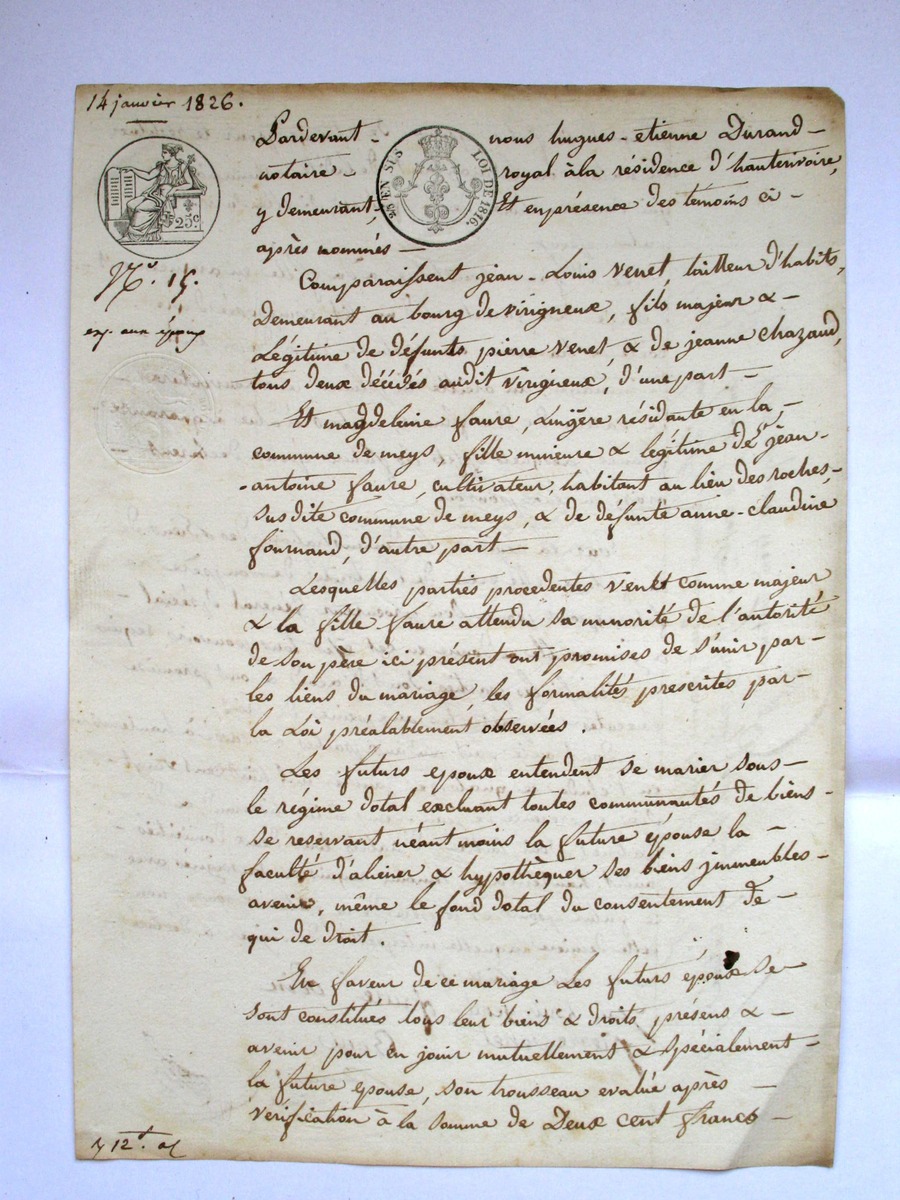 14 janvier 1826.
Pardevant - nous hugues-etienne Durand -
notaire - royal à la résidence d'hauterivoire,
y demeurant, Et en présence des témoins ci -
après nommés -
25 EN SUS LOI DE 1816.
25c
No. 15.
exp. aux époux
Comparaissent jean-Louis Venet, tailleur d'habits,
Demeurant au bourg de virigneux, fils majeur &
Légitime de défunts pierre Venet, & de jeanne chazaud,
tous deux décédés audit virigneux, d'une part -
Et magdeleine faure, Lingère résidante en la -
commune de meys, fille mineure & légitime de Sr jean-
-antoine faure, cultivateur, habitant au lieu des roches,
susdite commune de meys, & de défunte anne-claudine
fournand, d'autre part -
Lesquelles parties procedentes Venet comme majeur
& la fille faure attendu sa minorité de l'autorité
de son père ici présent ont promises de s'unir par-
les liens du mariage, les formalités prescrites par-
la Loi préalablement observées.
Les futurs epoux entendent se marier sous-
le régime dotal excluant toutes communautés de biens-
se reservant néantmoins la future épouse la -
faculté d'aliéner & hypothèquer ses biens immeubles-
avenir, même le fond dotal du consentement de-
qui de droit.
En faveur de ce mariage Les futurs époux se
sont constitués tous leur biens & droits présens &-
avenir pour en jouir mutuellement & spécialement-
la future epouse, son trousseau evalué après -
vérification à la somme de Deux cent francs -